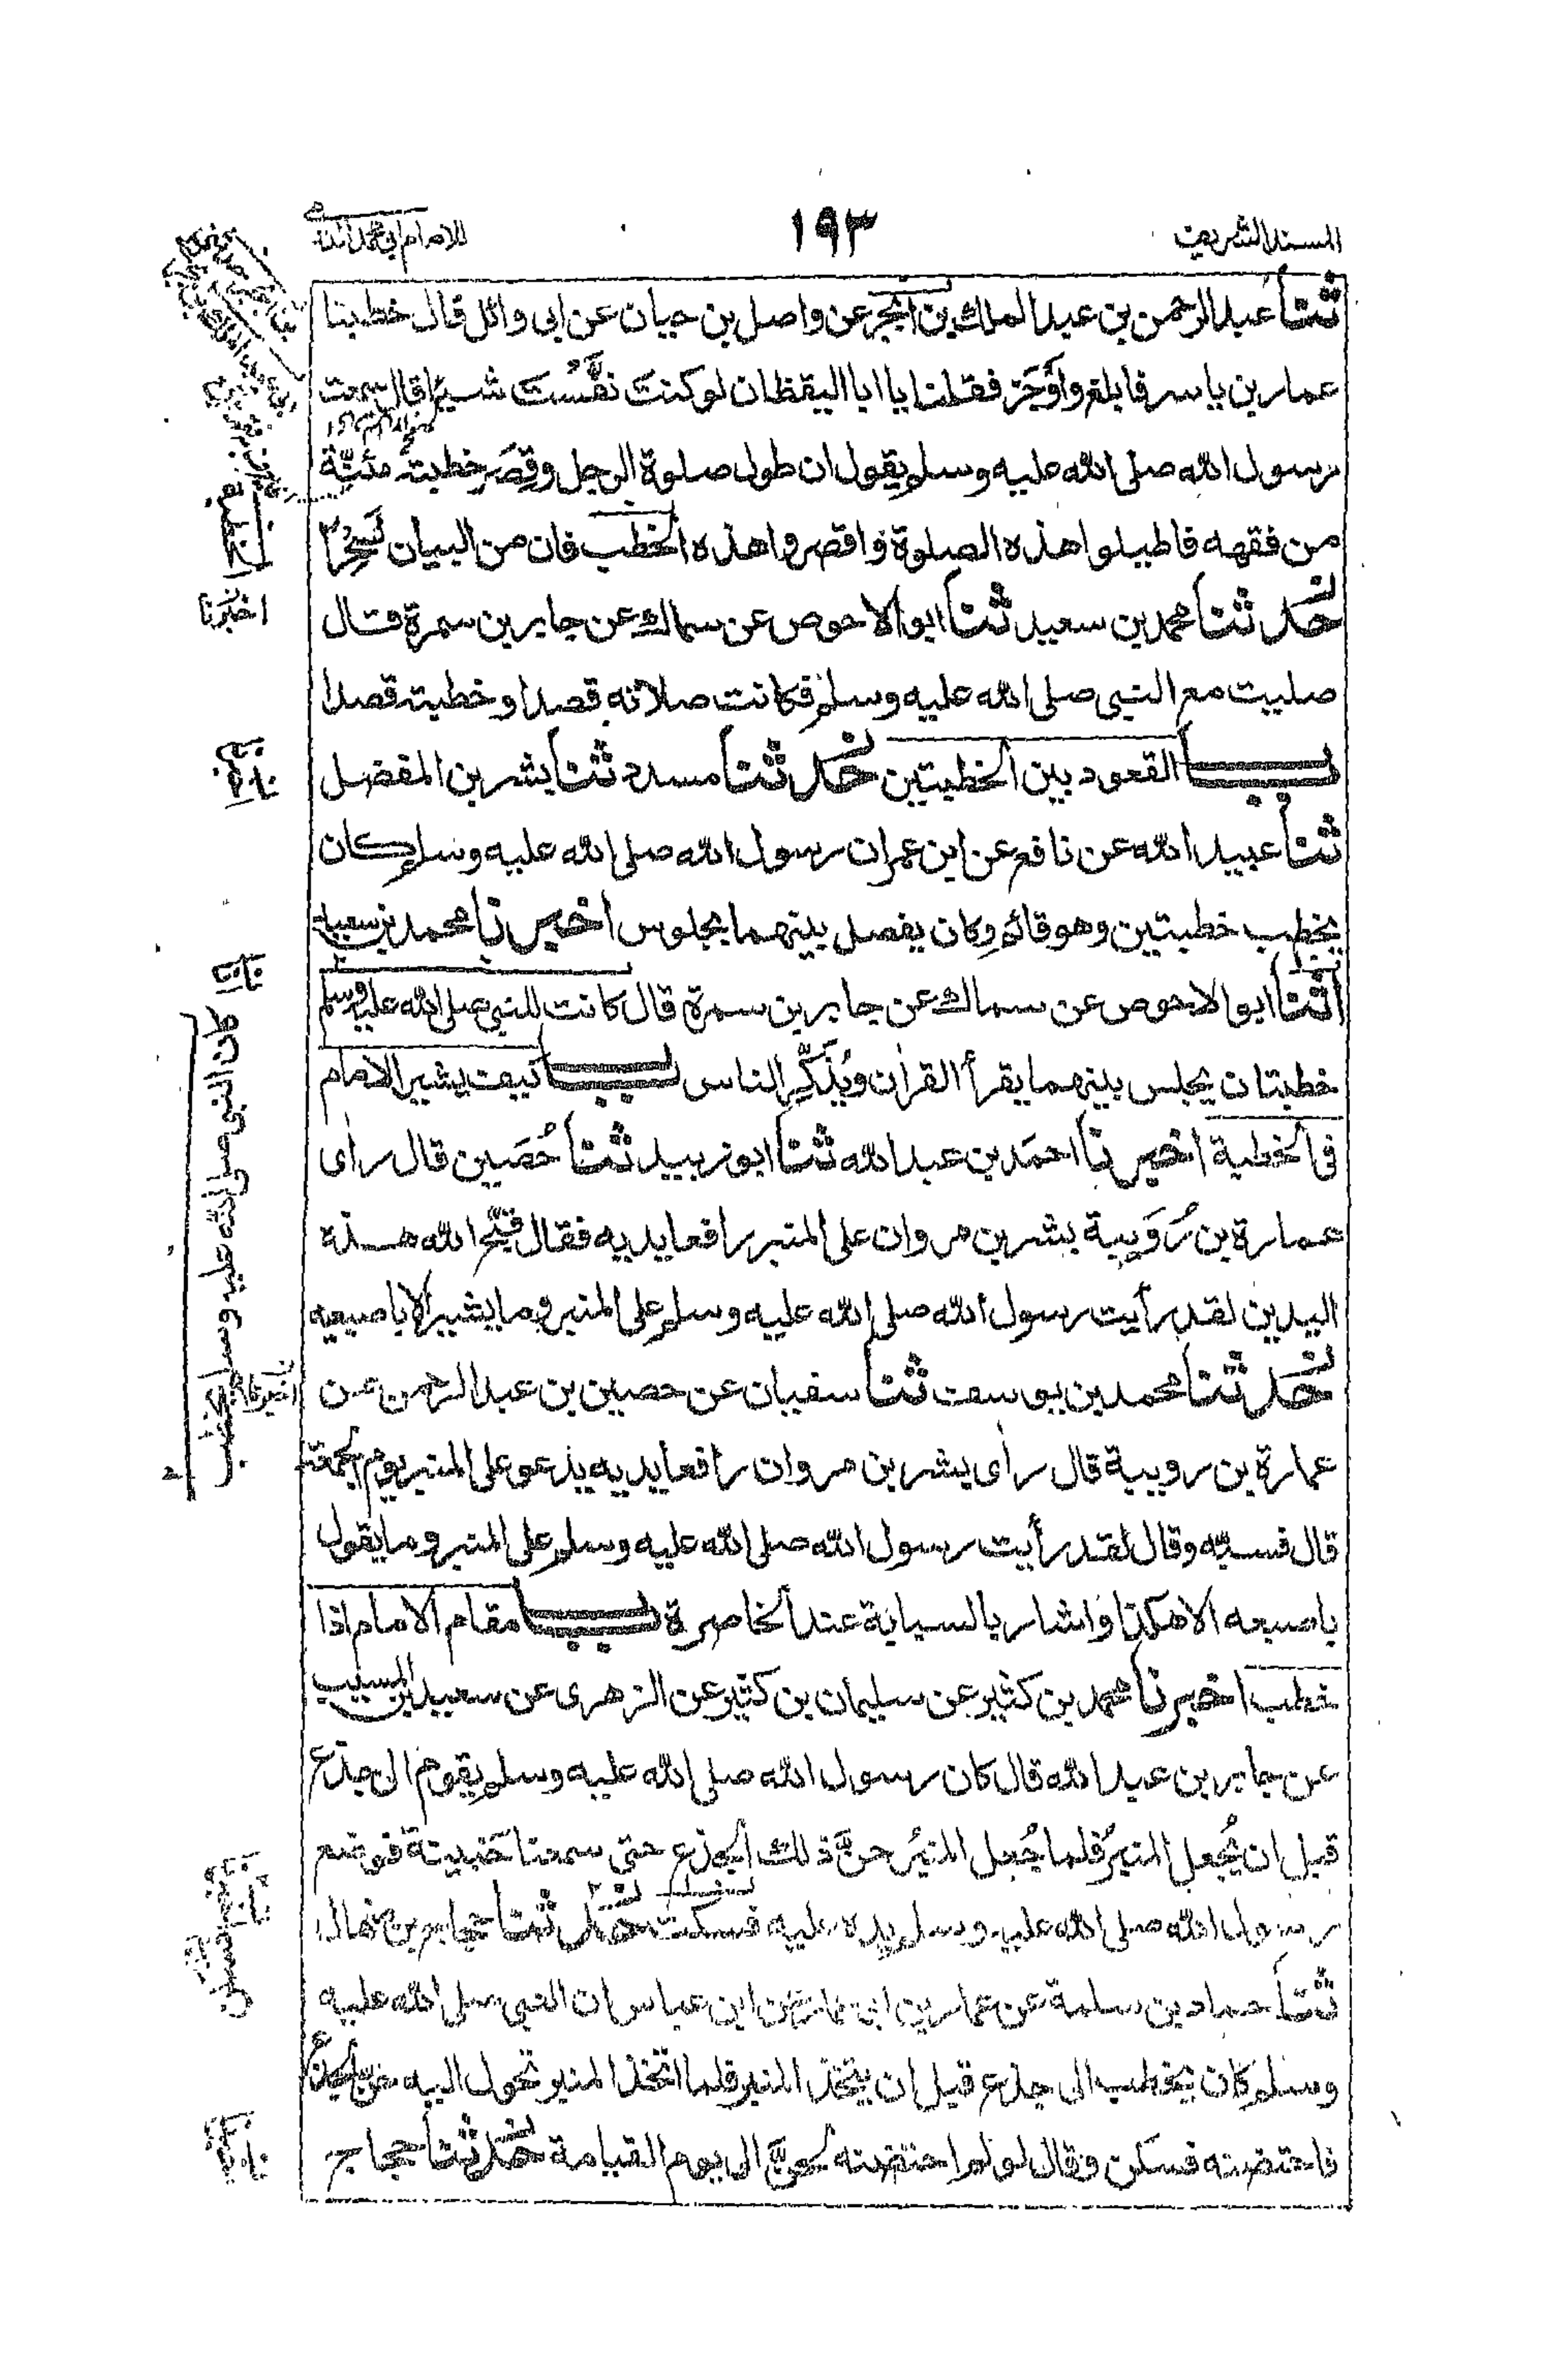 المسند الشريف
١٩٣
للامام ابي محمد
ثنا عبد الرحمن بن عبد الملك بن ابجر عن واصل بن حيان عن ابى وائل قال خطبنا
عمار بن ياسر فابلغ واوجَزَ فقلنا يا ابا اليقظان لو كنت نفَّستَ شيئا قال سمعت
رسول الله صلى الله عليه وسلم يقول ان طول صلوة الرجل وقِصَر خطبته مئنّة
من فقهه فاطيلوا هذه الصلوة واقصروا هذه الخطب فان من البيان لسِحْرًا
حدثنا محمد بن سعيد ثنا ابو الاحوص عن سماك عن جابر بن سمرة قال
صليت مع النبى صلى الله عليه وسلم فكانت صلاته قصدا وخطبته قصدا
باب القعود بين الخطبتين حدثنا مسدد ثنا بشر بن المفضل
ثنا عبيد الله عن نافع عن ابن عمر ان رسول الله صلى الله عليه وسلم كان
يخطب خطبتين وهو قائم وكان يفصل بينهما بجلوس اخبرنا محمد بن سعيد
ثنا ابو الاحوص عن سماك عن جابر بن سمرة قال كانت للنبى صلى الله عليه وسلم
خطبتان يجلس بينهما يقرأ القرآن ويُذَكِّر الناس باب كيف يشير الامام
فى الخطبة اخبرنا احمد بن عبد الله ثنا ابو زبيد ثنا حُصَين قال رأى
عمارة بن رُوَيبة بشر بن مروان على المنبر رافعا يديه فقال قبَّح الله هذه
اليدين لقد رأيت رسول الله صلى الله عليه وسلم على المنبر وما يشير الا باصبعه
حدثنا محمد بن يوسف ثنا سفيان عن حصين بن عبد الرحمن عن
عمارة بن رويبة قال رأى بشر بن مروان رافعا يديه يدعو على المنبر يوم الجمعة
قال فسبّه وقال لقد رأيت رسول الله صلى الله عليه وسلم على المنبر وما يقول
باصبعه الا هكذا واشار بالسبابة عند الخاصرة باب مقام الامام اذا
خطب اخبرنا محمد بن كثير عن سليمان بن كثير عن الزهرى عن سعيد بن المسيب
عن جابر بن عبد الله قال كان رسول الله صلى الله عليه وسلم يقوم الى جذع
قبل ان يُجعل المنبرُ فلما جُعل المنبرُ حنَّ ذلك الجذع حتى سمعنا حَنينه فوضع
رسول الله صلى الله عليه وسلم يده عليه فسكت حدثنا حجاج بن منهال
ثنا حماد بن سلمة عن عمار بن ابى عمار عن ابن عباس ان النبى صلى الله عليه
وسلم كان يخطب الى جذع قبل ان يتخذ المنبر فلما اتخذ المنبر تحول اليه حن الجذع
فاحتضنه فسكن وقال لو لم احتضنه لحنَّ الى يوم القيامة حدثنا حجاج
الخطبة
اخبرنا
كان النبى صلى الله عليه وسلم يخطب